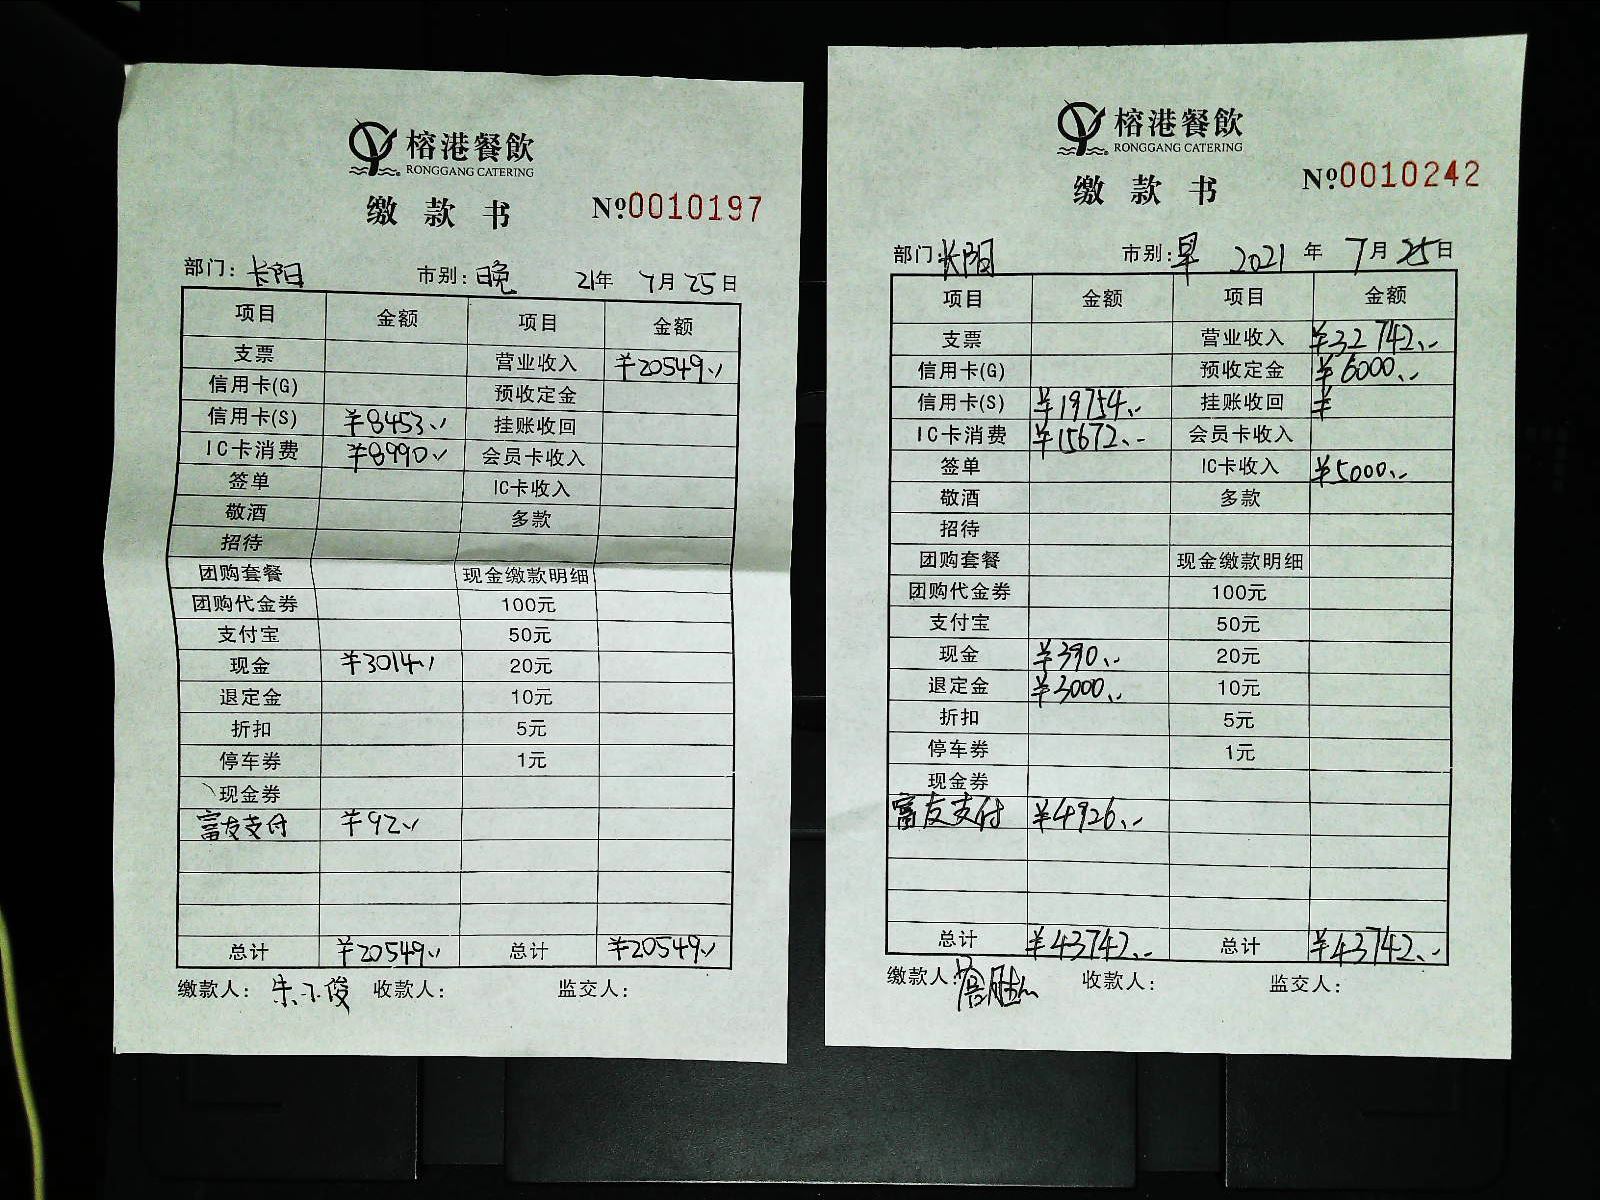 榕港餐飲
RONGGANG CATERING
缴款书 №0010197
部门：长阳 市别：晚 21年 7月25日
项目 金额 项目 金额
支票 营业收入 ¥20549.
信用卡(G) 预收定金
信用卡(S) ¥8453. 挂账收回
IC卡消费 ¥8990. 会员卡收入
签单 IC卡收入
敬酒 多款
招待
团购套餐 现金缴款明细
团购代金券 100元
支付宝 50元
现金 ¥3014. 20元
退定金 10元
折扣 5元
停车券 1元
现金券
富友支付 ¥92.
总计 ¥20549. 总计 ¥20549.
缴款人： 收款人： 监交人：
榕港餐飲
RONGGANG CATERING
缴款书 №0010242
部门：长阳 市别：早 2021年 7月25日
项目 金额 项目 金额
支票 营业收入 ¥32742.-
信用卡(G) 预收定金 ¥6000.-
信用卡(S) ¥19754.- 挂账收回 ¥
IC卡消费 ¥15672.- 会员卡收入
签单 IC卡收入 ¥5000.-
敬酒 多款
招待
团购套餐 现金缴款明细
团购代金券 100元
支付宝 50元
现金 ¥390.- 20元
退定金 ¥3000.- 10元
折扣 5元
停车券 1元
现金券
富友支付 ¥4926.-
总计 ¥43742.- 总计 ¥43742.-
缴款人： 收款人： 监交人：